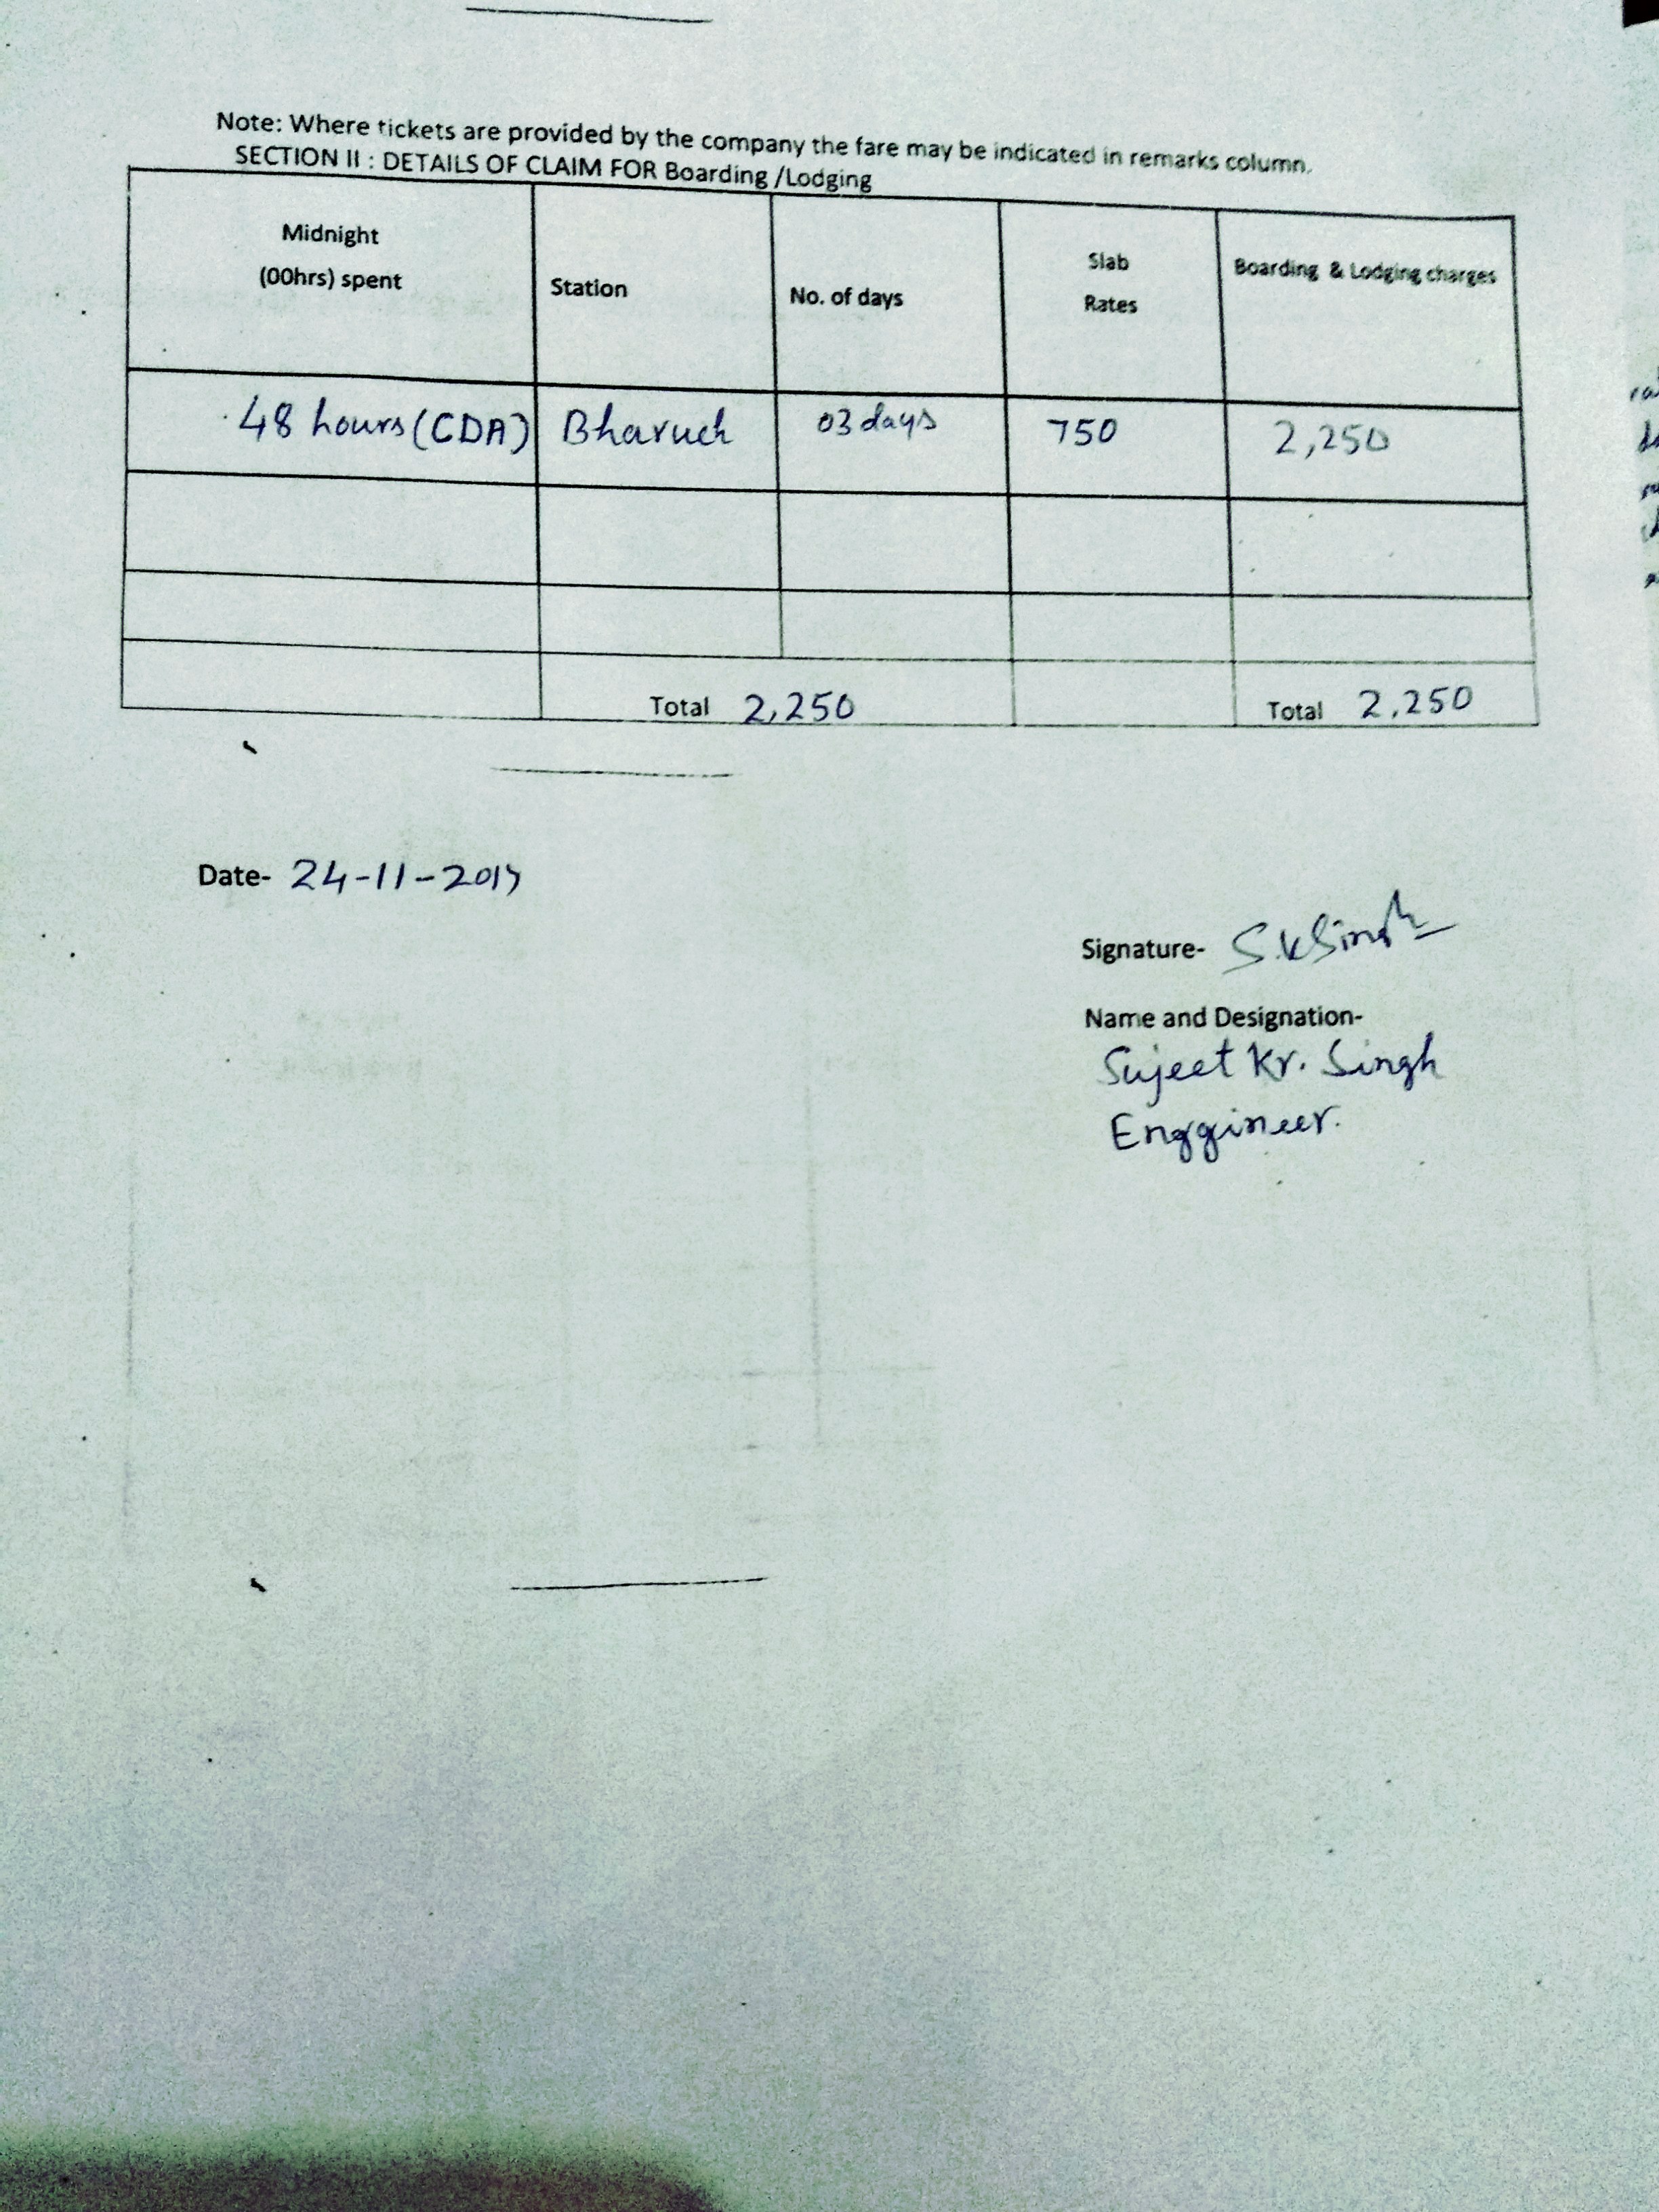 Note: Where tickets are provided by the company the fare may be indicated in remarks column.
SECTION II : DETAILS OF CLAIM FOR Boarding /Lodging
Midnight (00hrs) spent Station No. of days Slab Rates Boarding & Lodging charges
48 hours (CDA) Bharuch 03 days 750 2,250
Total 2,250 Total 2,250
Date- 24-11-2017
Signature- S.K Singh
Name and Designation-
Sujeet Kr. Singh
Enggineer.